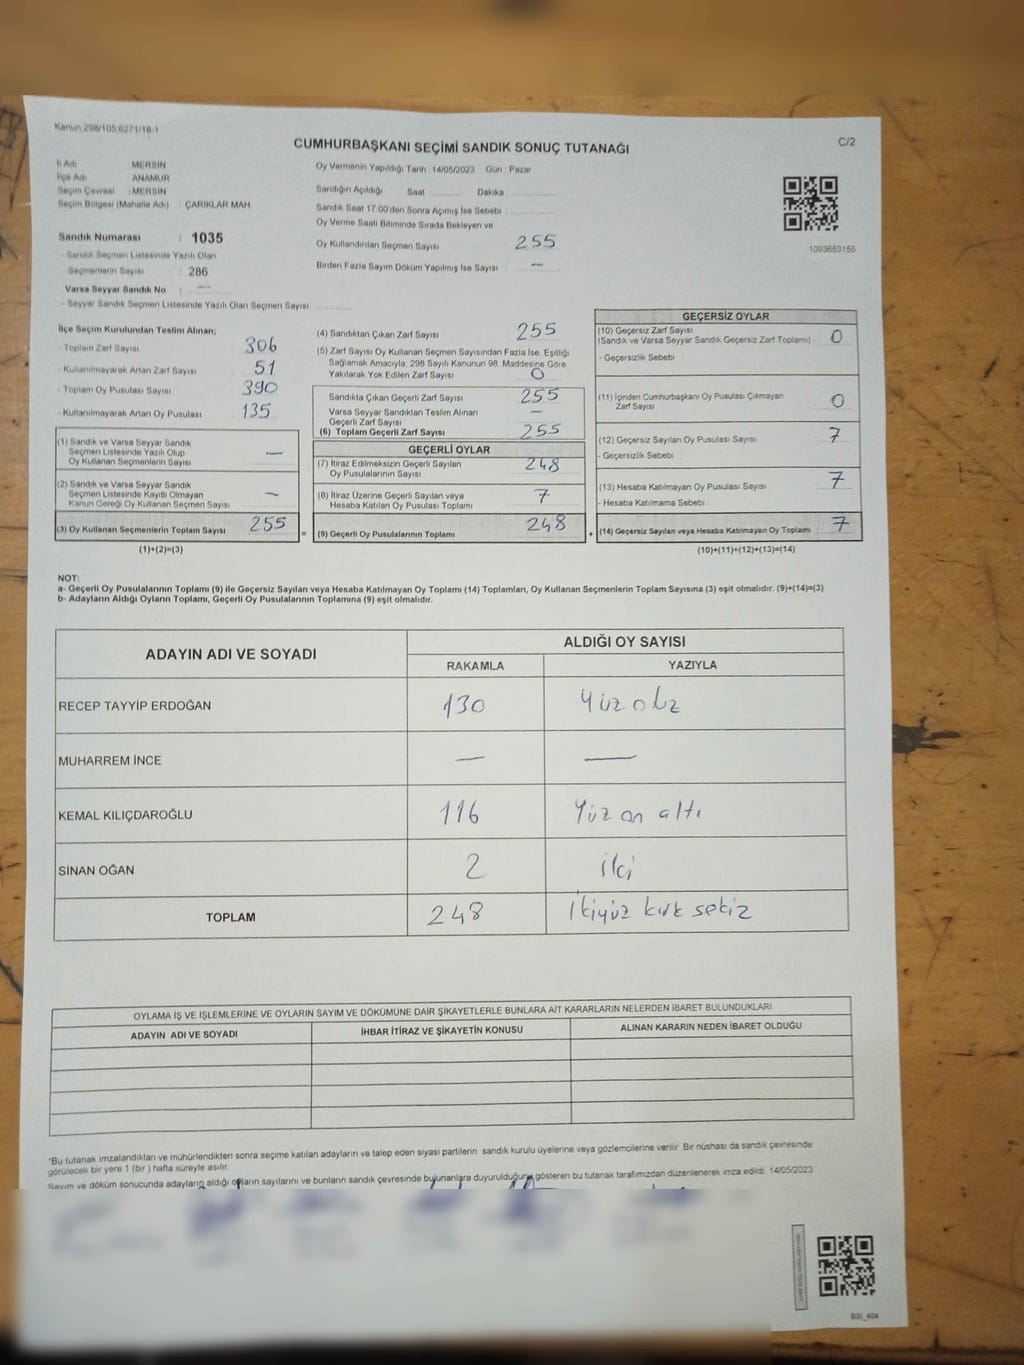 Kanun.298/105,6271/18-1
CUMHURBAŞKANI SEÇİMİ SANDIK SONUÇ TUTANAĞI
C/2
İl Adı MERSİN
İlçe Adı ANAMUR
Seçim Çevresi : MERSİN
Seçim Bölgesi (Mahalle Adı) : ÇARIKLAR MAH
Sandık Numarası : 1035
- Sandık Seçmen Listesinde Yazılı Olan
Seçmenlerin Sayısı : 286
Varsa Seyyar Sandık No : —
- Seyyar Sandık Seçmen Listesinde Yazılı Olan Seçmen Sayısı
Oy Vermenin Yapıldığı Tarih : 14/05/2023 Gün : Pazar
Sandığın Açıldığı Saat Dakika
Sandık Saat 17:00'den Sonra Açımış İse Sebebi :
Oy Verme Saati Bitiminde Sırada Bekleyen ve
Oy Kullandırılan Seçmen Sayısı 255
Birden Fazla Sayım Döküm Yapılmış İse Sayısı —
1093653155
İlçe Seçim Kurulundan Teslim Alınan;
- Toplam Zarf Sayısı 306
- Kullanılmayarak Artan Zarf Sayısı 51
- Toplam Oy Pusulası Sayısı 390
- Kullanılmayarak Artan Oy Pusulası 135
(1) Sandık ve Varsa Seyyar Sandık
Seçmen Listesinde Yazılı Olup
Oy Kullanan Seçmenlerin Sayısı —
(2) Sandık ve Varsa Seyyar Sandık
Seçmen Listesinde Kayıtlı Olmayan
Kanun Gereği Oy Kullanan Seçmen Sayısı —
(3) Oy Kullanan Seçmenlerin Toplam Sayısı 255 =
(1)+(2)=(3)
(4) Sandıktan Çıkan Zarf Sayısı 255
(5) Zarf Sayısı Oy Kullanan Seçmen Sayısından Fazla İse, Eşitliği
Sağlamak Amacıyla, 298 Sayılı Kanunun 98. Maddesine Göre
Yakılarak Yok Edilen Zarf Sayısı 0
Sandıkta Çıkan Geçerli Zarf Sayısı 255
Varsa Seyyar Sandıktan Teslim Alınan
Geçerli Zarf Sayısı —
(6) Toplam Geçerli Zarf Sayısı 255
GEÇERLİ OYLAR
(7) İtiraz Edilmeksizin Geçerli Sayılan
Oy Pusulalarının Sayısı 248
(8) İtiraz Üzerine Geçerli Sayılan veya
Hesaba Katılan Oy Pusulası Toplamı 7
(9) Geçerli Oy Pusulalarının Toplamı 248 +
GEÇERSİZ OYLAR
(10) Geçersiz Zarf Sayısı
(Sandık ve Varsa Seyyar Sandık Geçersiz Zarf Toplamı) 0
- Geçersizlik Sebebi :
(11) İçinden Cumhurbaşkanı Oy Pusulası Çıkmayan
Zarf Sayısı 0
(12) Geçersiz Sayılan Oy Pusulası Sayısı 7
- Geçersizlik Sebebi :
(13) Hesaba Katılmayan Oy Pusulası Sayısı 7
- Hesaba Katılmama Sebebi :
(14) Geçersiz Sayılan veya Hesaba Katılmayan Oy Toplamı 7
(10)+(11)+(12)+(13)=(14)
NOT:
a- Geçerli Oy Pusulalarının Toplamı (9) ile Geçersiz Sayılan veya Hesaba Katılmayan Oy Toplamı (14) Toplamları, Oy Kullanan Seçmenlerin Toplam Sayısına (3) eşit olmalıdır. (9)+(14)=(3)
b- Adayların Aldığı Oyların Toplamı, Geçerli Oy Pusulalarının Toplamına (9) eşit olmalıdır.
ADAYIN ADI VE SOYADI ALDIĞI OY SAYISI
RAKAMLA YAZIYLA
RECEP TAYYİP ERDOĞAN 130 Yüz otuz
MUHARREM İNCE — —
KEMAL KILIÇDAROĞLU 116 Yüz on altı
SİNAN OĞAN 2 iki
TOPLAM 248 İkiyüz kırk sekiz
OYLAMA İŞ VE İŞLEMLERİNE VE OYLARIN SAYIM VE DÖKÜMÜNE DAİR ŞİKAYETLERLE BUNLARA AİT KARARLARIN NELERDEN İBARET BULUNDUKLARI
ADAYIN ADI VE SOYADI İHBAR İTİRAZ VE ŞİKAYETİN KONUSU ALINAN KARARIN NEDEN İBARET OLDUĞU
*Bu tutanak imzalandıktan ve mühürlendikten sonra seçime katılan adayların ve talep eden siyasi partilerin sandık kurulu üyelerine veya gözlemcilerine verilir. Bir nüshası da sandık çevresinde
görülecek bir yere 1 (bir ) hafta süreyle asılır.
Sayım ve döküm sonucunda adayların aldığı oyların sayılarını ve bunların sandık çevresinde bulunanlara duyurulduğunu gösteren bu tutanak tarafımızdan düzenlenerek imza edildi. 14/05/2023